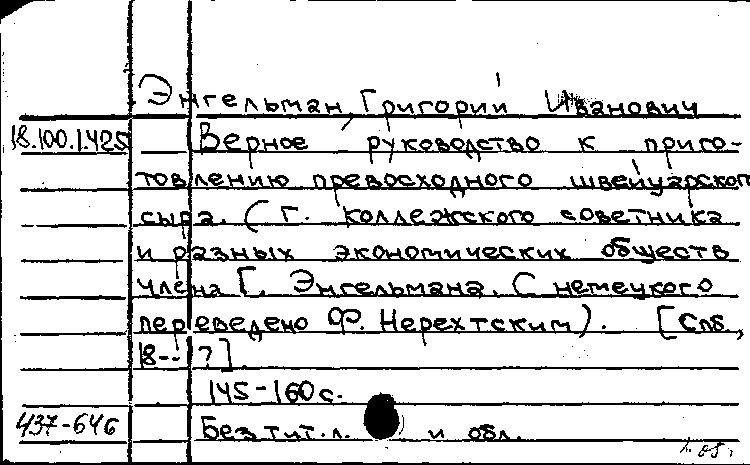 Энгельман, Григорий Иванович
18.100.1.425 Верное руководство к приго-
товлению превосходного швейцарского
сыра. (Г. коллежского советника
и разных экономических обществ
члена Г. Энгельмана. С немецкого
переведено Ф. Нерехтским). [Спб.,
18--?].
145-160с.
437-646 Без тит. л. и обл.